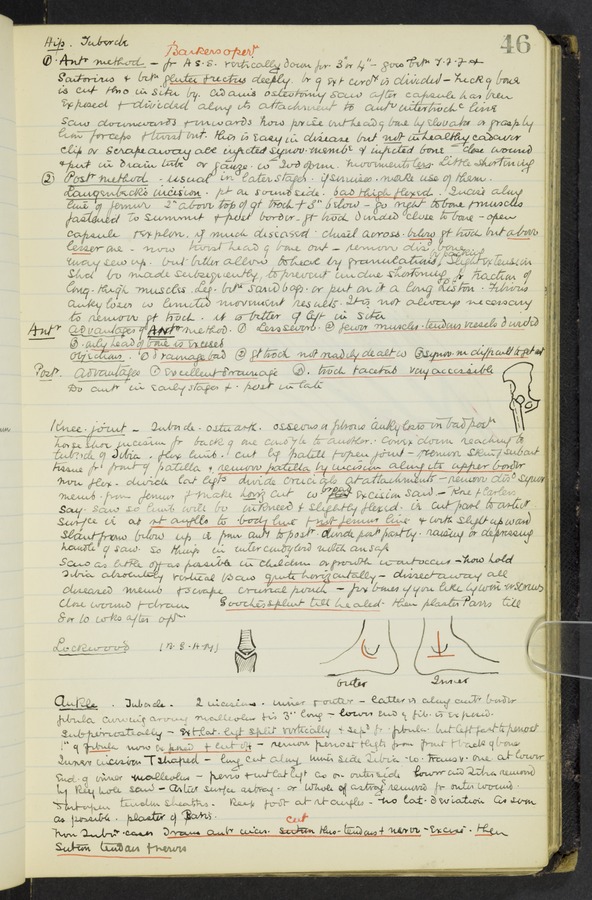 46
Hip. Tubercle
Barkers oper
① Antr method - fr A.S.S. vertically down for 3" or 4" - goes betn T.F.F. &
Sartorius & betn gluteus & rectus deeply. is divided - neck of bone
is cut thro in situ by Adams osteotomy saw after capsule has been
exposed & divided along its attachment to antr intertroch line
Saw downwards & inwards now prise out head of bone by elevator or grasp by
lion forceps & twist out. this is easy in disease but not in healthy cadaver
clip or scrape away all infected synov. memb. & infected bone - close wound
& put in drain tube or gauze movement less little shortening
② Postr method - usual in later stages. if sinuses - make use of them
Langenbeck's incision. pt on sound side. bad thigh flexed. Incise along
line of femur 2" above top of gt troch & 3" below - go right to bone & muscles
fastened to summit & post border gt troch divided close to bone - open
capsule & explore. if much diseased - chisel across below gt troch but above
lesser one - now twist head of bone out - remove dis. bone
may sew up. but better allow to heal by granulation & packing Slight extension
shd be made subsequently, to prevent undue shortening & traction of
long thigh muscles. Leg betn sand bags or put on it a long Liston. Fibrous
ankylosis or limited movement results. It is not always necessary
to remove gt troch. it is better if left in situ
Antr advantages of Antr method. ① Less severe ② fewer muscles tendons vessels divided
③ only head of bone is excised
objections. ① drainage bad ② gt troch not readily dealt w ③ synov. m difficult to get at
Postr. advantages ① Excellent drainage ② troch & acetab very accessible
Do antr in early stages & postr in late
Knee-joint - Tubercle. osteoarth. osseous or fibrous ankylosis in bad postn
horse shoe incision fr back of one condyle to another. convex down reaching to
tubercle of Tibia. flex limb. cut lig patell & open joint - remove skin & subcut
tissue fr front of patella & remove patella by incision along its upper border
now flex. divide lat ligts divide crucials at attachments - remove disd synov
memb. from femur & make horz cut w broad excision saw - Knee & Carless
say - saw so limb will be & slightly flexed. is cut parl to artic
surface ie at rt angles to body line & not femur line & with slight upward
slant from below up. & from antr to postr. divide part partly raising or depressing
handle of saw. So things in intercondyloid notch are safe
Saw as little off as possible in children or growth wont occur - now hold
Tibia absolutely vertical & saw quite horizontally - dissect away all
diseased memb & scrape crureal pouch - fix bones if you like by wire or screws
close wound & drain Gooch's splint till healed. then plaster Paris till
8 or 10 wks after opn
Lockwood's (B.S.A.M)
outer
Inner
Ankle. Tubercle. 2 incisions. inner & outer - latter is along antr border
fibula curving around malleolus & is 3" long - lower end of fib. is exposed
subperiosteally - Ext lat. ligt split vertically & sepd fr fibula but left fast to periost
1" of fibula now exposed & cut off - remove periost & ligts from front & back of bone
Inner incision T shaped - long cut along inner side Tibia. transv. one at lower
end of inner malleolus - perios & int lat ligt as on outer side lower end Tibia removed
by Key hole saw - artic surface astrag. or whole of astrag removed fr outer wound.
Dont open tendon sheaths. Keep foot at rt angles - no lat. deviation. As soon
as possible. plaster of Paris.
cut
Non Tubr cases Trans antr incis. thro. tendons & nerve - Excise. then
Suture tendons & nerves